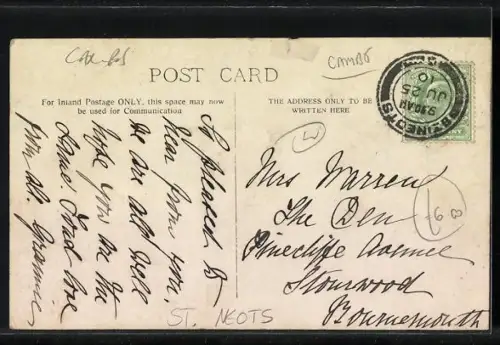 CAMBS
CAMBS
POST CARD
For Inland Postage ONLY, this space may now
be used for Communication
THE ADDRESS ONLY TO BE
WRITTEN HERE
ST. NEOTS
9.30AM
JU 25
10
So pleased to
hear from you.
We are all well
hope you are the
same. Fond love
from all. Grannie
Mrs Warren
The Den
Pinecliffe Avenue
Stourwood
Bournemouth
ST. NEOTS